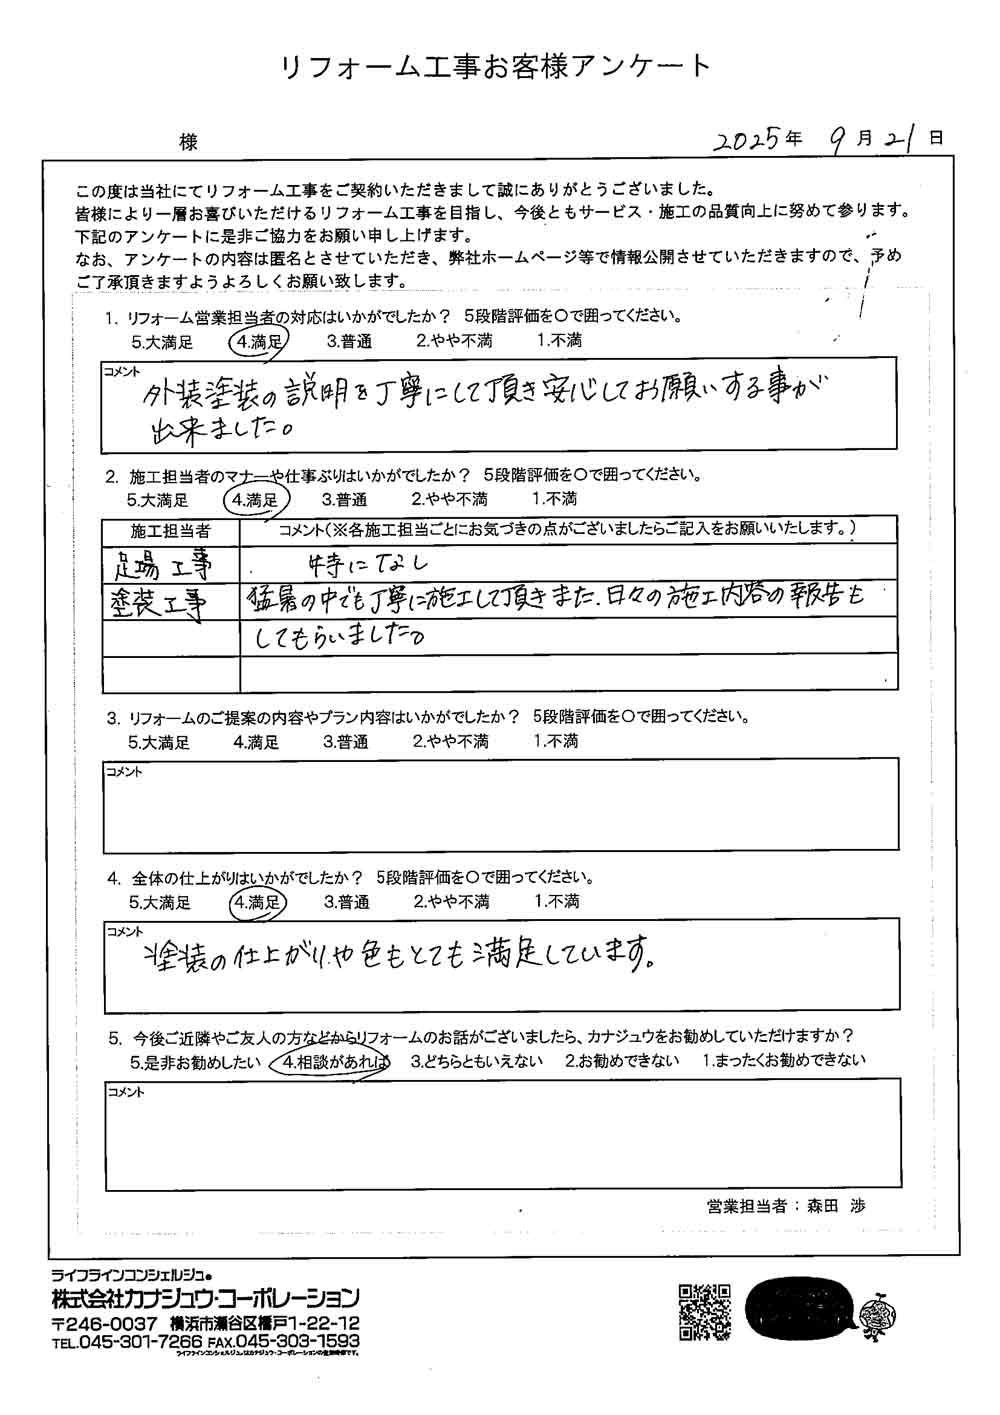 リフォーム工事お客様アンケート
様
2025年 9月21日
この度は当社にてリフォーム工事をご契約いただきまして誠にありがとうございました。
皆様により一層お喜びいただけるリフォーム工事を目指し、今後ともサービス・施工の品質向上に努めて参ります。
下記のアンケートに是非ご協力をお願い申し上げます。
なお、アンケートの内容は匿名とさせていただき、弊社ホームページ等で情報公開させていただきますので、予め
ご了承頂きますようよろしくお願い致します。
1. リフォーム営業担当者の対応はいかがでしたか? 5段階評価を〇で囲ってください。
5.大満足 4.満足 3.普通 2.やや不満 1.不満
コメント
外装塗装の説明を丁寧にして頂き安心してお願いする事が
出来ました。
2. 施工担当者のマナーや仕事ぶりはいかがでしたか? 5段階評価を〇で囲ってください。
5.大満足 4.満足 3.普通 2.やや不満 1.不満
施工担当者 コメント(※各施工担当ごとにお気づきの点がございましたらご記入をお願いいたします。)
足場工事 特になし
塗装工事 猛暑の中でも丁寧に施工して頂きまた、日々の施工内容の報告も
してもらいました。
3. リフォームのご提案の内容やプラン内容はいかがでしたか? 5段階評価を〇で囲ってください。
5.大満足 4.満足 3.普通 2.やや不満 1.不満
コメント
4. 全体の仕上がりはいかがでしたか? 5段階評価を〇で囲ってください。
5.大満足 4.満足 3.普通 2.やや不満 1.不満
コメント
塗装の仕上がりや色もとても満足しています。
5. 今後ご近隣やご友人の方などからリフォームのお話がございましたら、カナジュウをお勧めしていただけますか?
5.是非お勧めしたい 4.相談があれば 3.どちらともいえない 2.お勧めできない 1.まったくお勧めできない
コメント
営業担当者:森田 渉
ライフラインコンシェルジュ®
株式会社カナジュウ・コーポレーション
〒246-0037 横浜市瀬谷区橋戸1-22-12
TEL.045-301-7266 FAX.045-303-1593
ライフラインコンシェルジュはカナジュウ・コーポレーションの登録商標です。